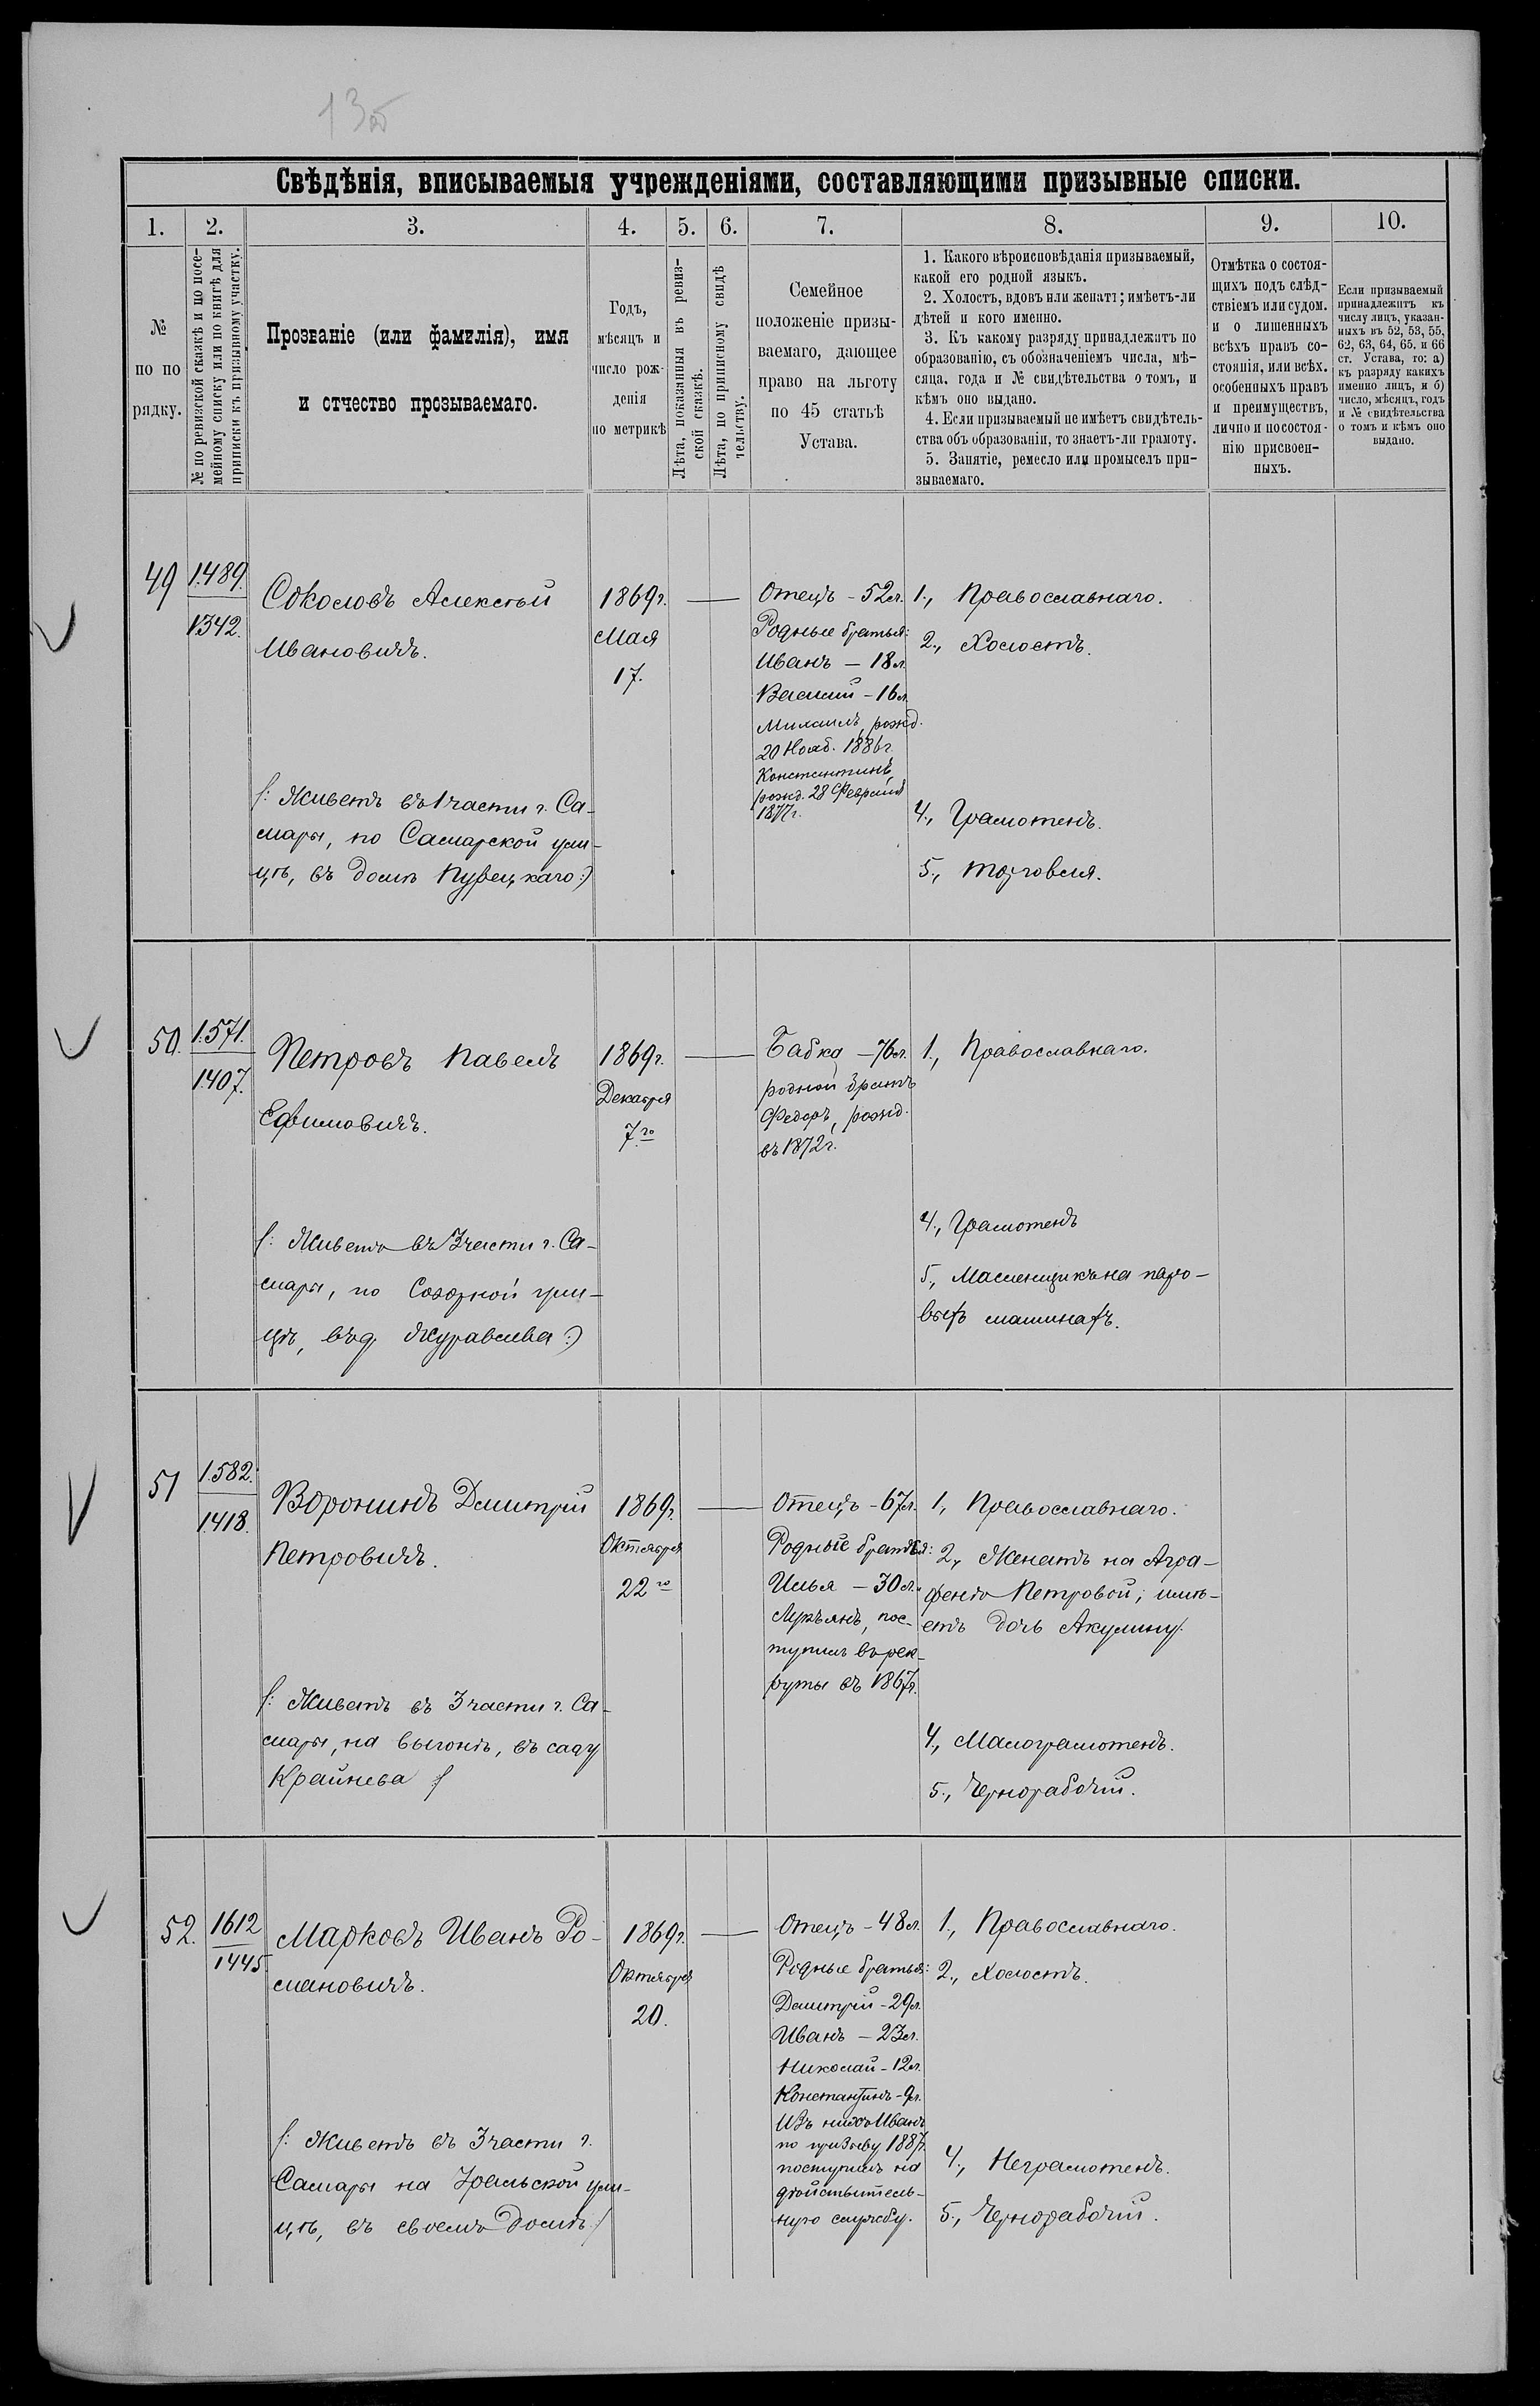 13об
Свѣдѣнія, вписываемыя учрежденіями, составляющими призывные списки.
1. 2. 3. 4. 5. 6. 7. 8. 9. 10.
№
по по
рядку.
№ по ревизской сказкѣ и по посе-
мейному списку или по книгѣ для
приписки къ призывному участку.
Прозваніе (или фамилія), имя
и отчество прозываемаго.
Годъ,
мѣсяцъ и
число рож-
денія
по метрикѣ
Лѣта, показанныя въ ревиз-
ской сказкѣ.
Лѣта, по приписному свидѣ
тельству.
Семейное
положеніе призы-
ваемаго, дающее
право на льготу
по 45 статьѣ
Устава.
1. Какого вѣроисповѣданія призываемый,
какой его родной языкъ.
2. Холостъ, вдовъ или женатъ; имѣетъ-ли
дѣтей и кого именно.
3. Къ какому разряду принадлежитъ по
образованію, съ обозначеніемъ числа, мѣ-
сяца, года и № свидѣтельства о томъ, и
кѣмъ оно выдано.
4. Если призываемый не имѣетъ свидѣтель-
ства объ образованіи, то знаетъ-ли грамоту.
5. Занятіе, ремесло или промыселъ при-
зываемаго.
Отмѣтка о состоя-
щихъ подъ слѣд-
ствіемъ или судом.
и о лишенныхъ
всѣхъ правъ со-
стоянія, или всѣх.
особенныхъ правъ
и преимуществъ,
лично и по состоя-
нію присвоен-
ныхъ.
Если призываемый
принадлежитъ къ
числу лицъ, указан-
ныхъ въ 52, 53, 55,
62, 63, 64, 65, и 66
ст. Устава, то: а)
къ разряду какихъ
именно лицъ, и б)
число, мѣсяцъ, годъ
и № свидѣтельства
о томъ и кѣмъ оно
выдано.
49
1489.
1342.
Соколовъ Алексѣй
Ивановичъ.
/: Живетъ въ 1 части г. Са-
мары, по Самарской ули-
цѣ, въ домѣ :)
1869г.
Мая
17.
Отецъ - 52л.
Родные братья:
Иванъ - 18л.
Василій - 16л.
Михаилъ, рожд.
20 Нояб. 1886г.
Константинъ,
рожд. 28 Февраля
1877г.
1., Православнаго.
2., Холостъ.
4., Грамотенъ.
5., торговля.
50.
1.571.
1407.
Петровъ Павелъ
Ефимовичъ.
/: Живетъ въ 3 части г. Са-
мары, по Соборной ули-
цѣ, въ д. Журавлева :)
1869г.
Декабря
7го
Бабка - 76л.
родной братъ
Федоръ, рожд.
въ 1872г.
1., Православнаго.
4., Грамотенъ
5., Масленщикъ на паро-
выхъ машинахъ.
51
1.582.
1418.
Воронинъ Дмитрій
Петровичъ.
/: Живетъ въ 3 части г. Са-
мары, на выгонѣ, въ саду
Крайнева :/
1869г.
Октября
22го
Отецъ - 67л.
Родные братья:
Илья - 30л.
Лукьянъ, пос-
тупилъ въ рек-
руты въ 1867г.
1., Православнаго.
2., Женатъ на Агра-
фенѣ Петровой, имѣ-
етъ дочь Акулину.
4., Малограмотенъ.
5., Чернорабочій.
52.
1612
1445
Марковъ Иванъ Ро-
мановичъ.
/: Живетъ въ 3 части г.
Самары на Уральской ули-
цѣ, въ своемъ домѣ :/
1869г.
Октября
20.
Отецъ - 48л.
Родные братья:
Дмитрій - 29л.
Иванъ - 23л.
Николай - 12л.
Константинъ - 9л.
Изъ нихъ Иванъ
по призыву 1887г.
поступилъ на
дѣйствитель-
ную службу.
1., Православнаго.
2., Холостъ.
4., Неграмотенъ.
5., Чернорабочій.